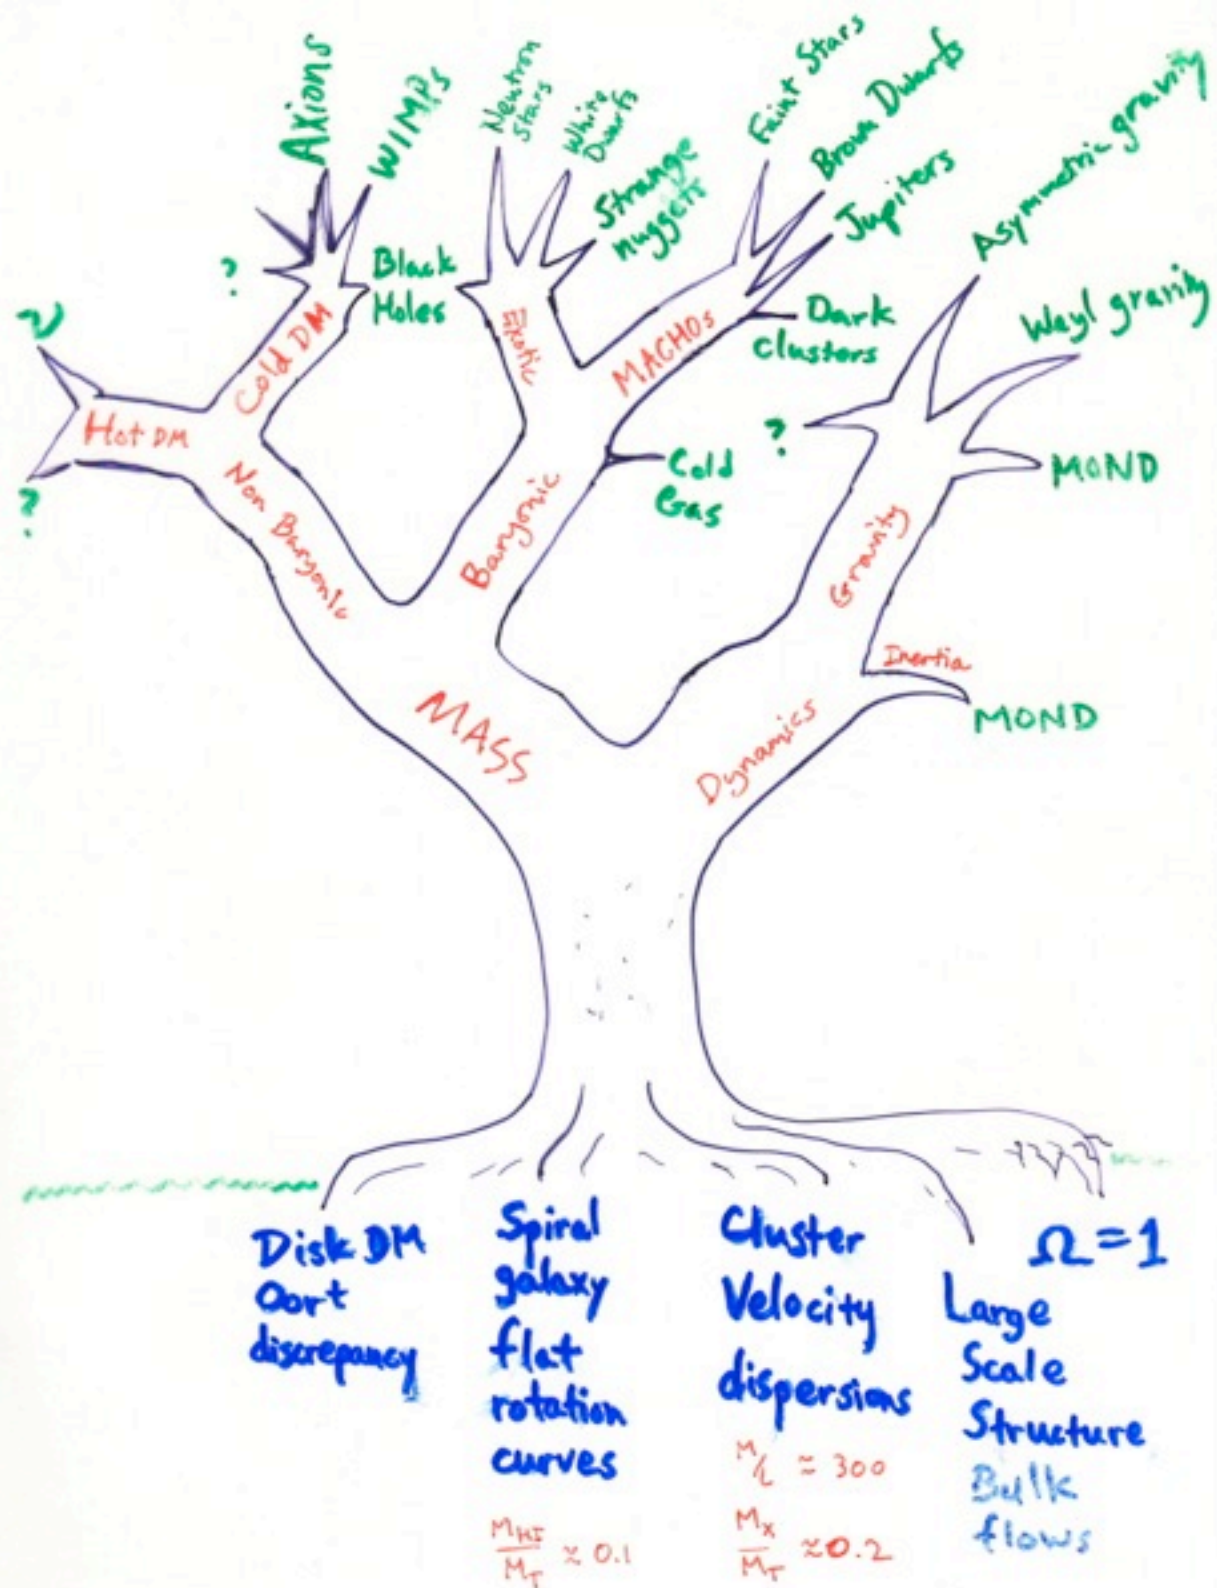 Axions
WIMPs
Neutron
Stars
White
Dwarfs
Strange
nuggets
Faint Stars
Brown Dwarfs
Jupiters
Asymmetric gravity
Weyl gravity
?
Black
Holes
Dark
clusters
Cold DM
Exotic
MACHOs
ν
Hot DM
?
?
Cold
Gas
MOND
Non Baryonic
Baryonic
Gravity
Inertia
MOND
MASS
Dynamics
Disk DM
Oort
discrepancy
Spiral
galaxy
flat
rotation
curves
M_HI/M_T ≈ 0.1
Cluster
Velocity
dispersions
M/L ≈ 300
M_X/M_T ≈ 0.2
Ω = 1
Large
Scale
Structure
Bulk
flows